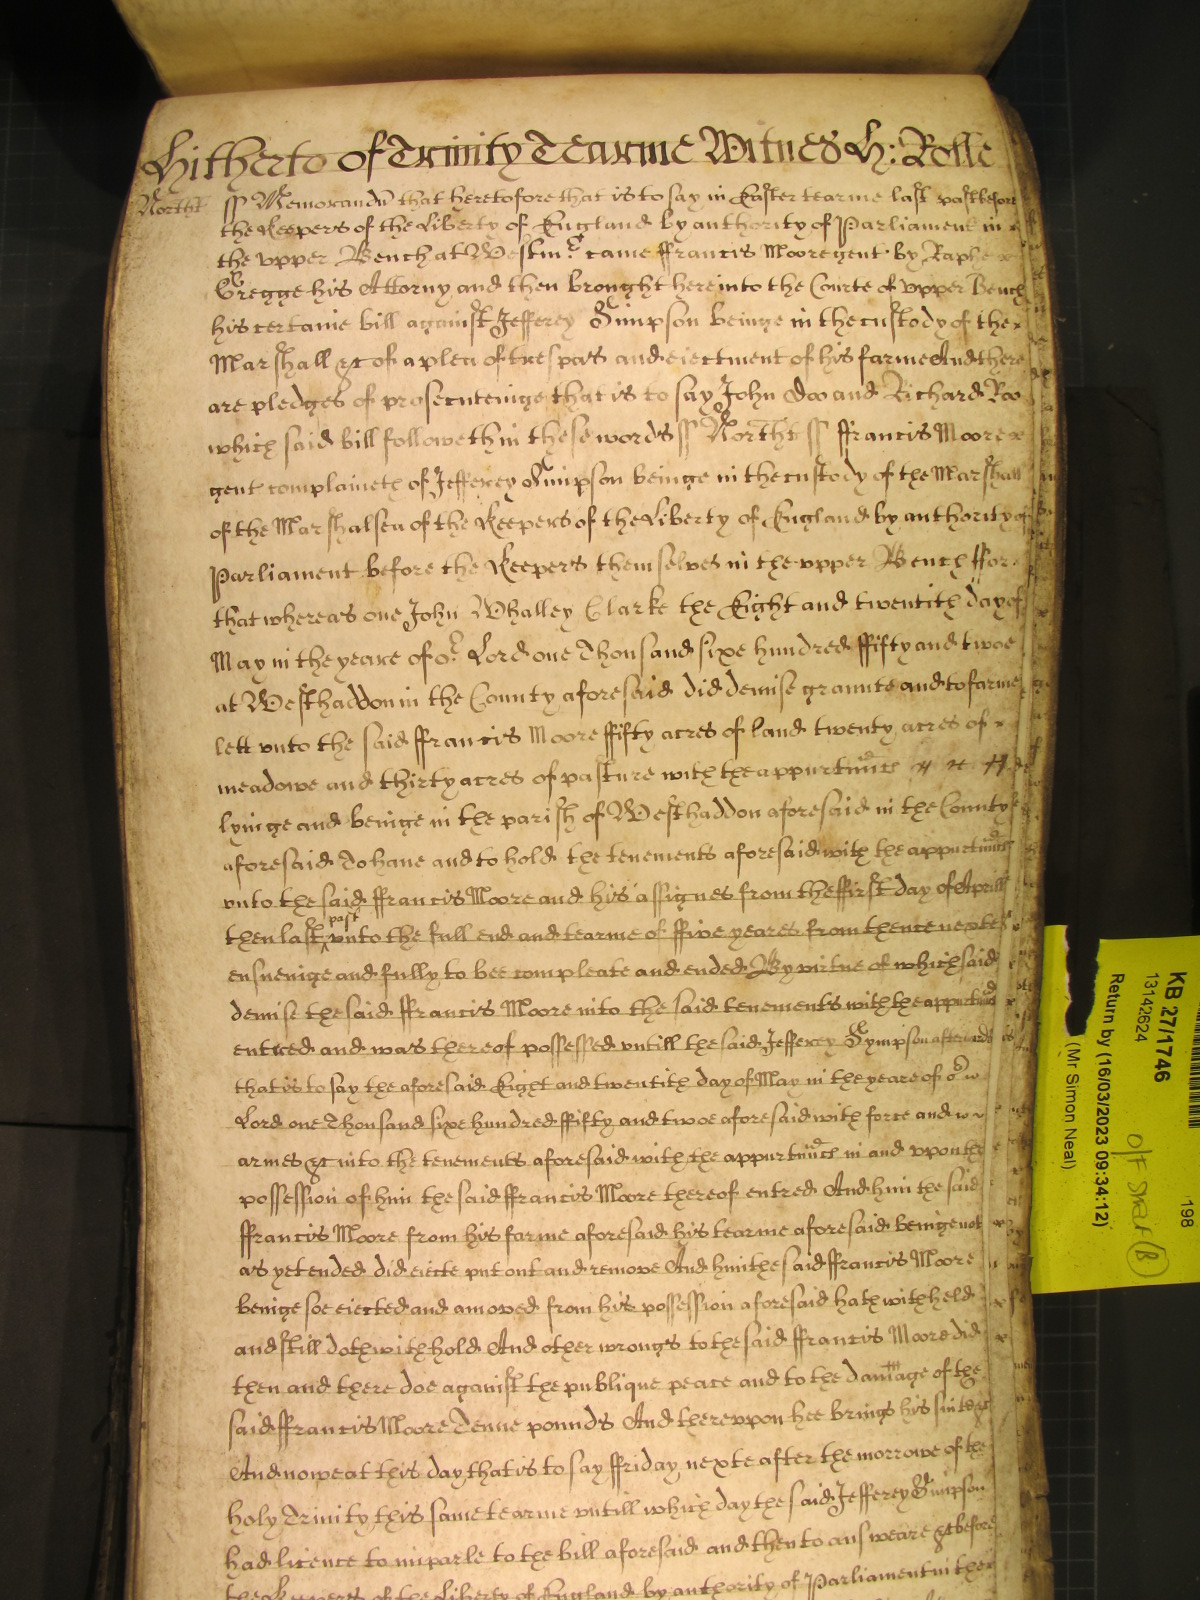 Hitherto of Trinity Tearme Witnes H: Rolle
Northt ss Memorandũ that heretofore that is to say in Easter tearme last past before
the Keepers of the Liberty of England by authority of Parliament in
the vpper Bench at Westmr came ffrancis Moore gent by Raphe
Gregge his Attorny and then brought here into the Courte of vpper Bench
his certaine bill against Jefferey Simpson beinge in the custody of the
Marshall &c of a plea of trespas and eiectment of his farme And there
are pledges of prosecuteinge that is to say John Doo and Richard Roo
which said bill followeth in these words ss Northt ss ffrancis Moore
gent complaineth of Jefferey Simpson beinge in the custody of the Marshall
of the Marshalsea of the Keepers of the Liberty of England by authority of
Parliament before the Keepers themselves in the vpper Bench ffor
that whereas one John Whalley Clarke the Eight and twentith day of
May in the yeare of or Lord one Thousand sixe hundred ffifty and twoe
at Westhaddon in the County aforesaid did demise graunte and to farme
lett vnto the said ffrancis Moore ffifty acres of land twenty acres of
meadowe and thirty acres of pasture with the appurtnñces
lyinge and beinge in the parish of Westhaddon aforesaid in the County
aforesaid To have and to hold the tenements aforesaid with the appurtnñces
vnto the said ffrancis Moore and his assignes from the ffirst day of Aprill
then last past vnto the full end and tearme of ffive yeares from thence nexte
ensueinge and fully to bee compleate and ended By virtue of which said
demise the said ffrancis Moore into the said tenements with the appurtnñces
entred and was thereof possessed vntill the said Jefferey Sympson afterwards
that is to say the aforesaid Eight and twentith day of May in the yeare of or
Lord one Thousand sixe hundred ffifty and twoe aforesaid with force and
armes &c into the tenements aforesaid with the appurtnñces in and vpon the
possession of him the said ffrancis Moore thereof entred And him the said
ffrancis Moore from his farme aforesaid his tearme aforesaid beinge not
as yet ended did eiecte put out and remove And him the said ffrancis Moore
beinge soe eiected and amoved from his possession aforesaid hath withheld
and still doth withhold And other wrongs to the said ffrancis Moore did
then and there doe against the publique peace and to the damage of the
said ffrancis Moore Tenne pounds And therevpon hee brings his suite &c
And nowe at this day that is to say ffriday nexte after the morrowe of the
holy Trinity this same tearme vntill which day the said Jefferey Simpson
had licence to imparle to the bill aforesaid and then to answeare &c before
the Keepers of the Liberty of England by authority of Parliament in the
KB 27/1746
13142624
Return by (16/03/2023 09:34:12)
(Mr Simon Neal)
198